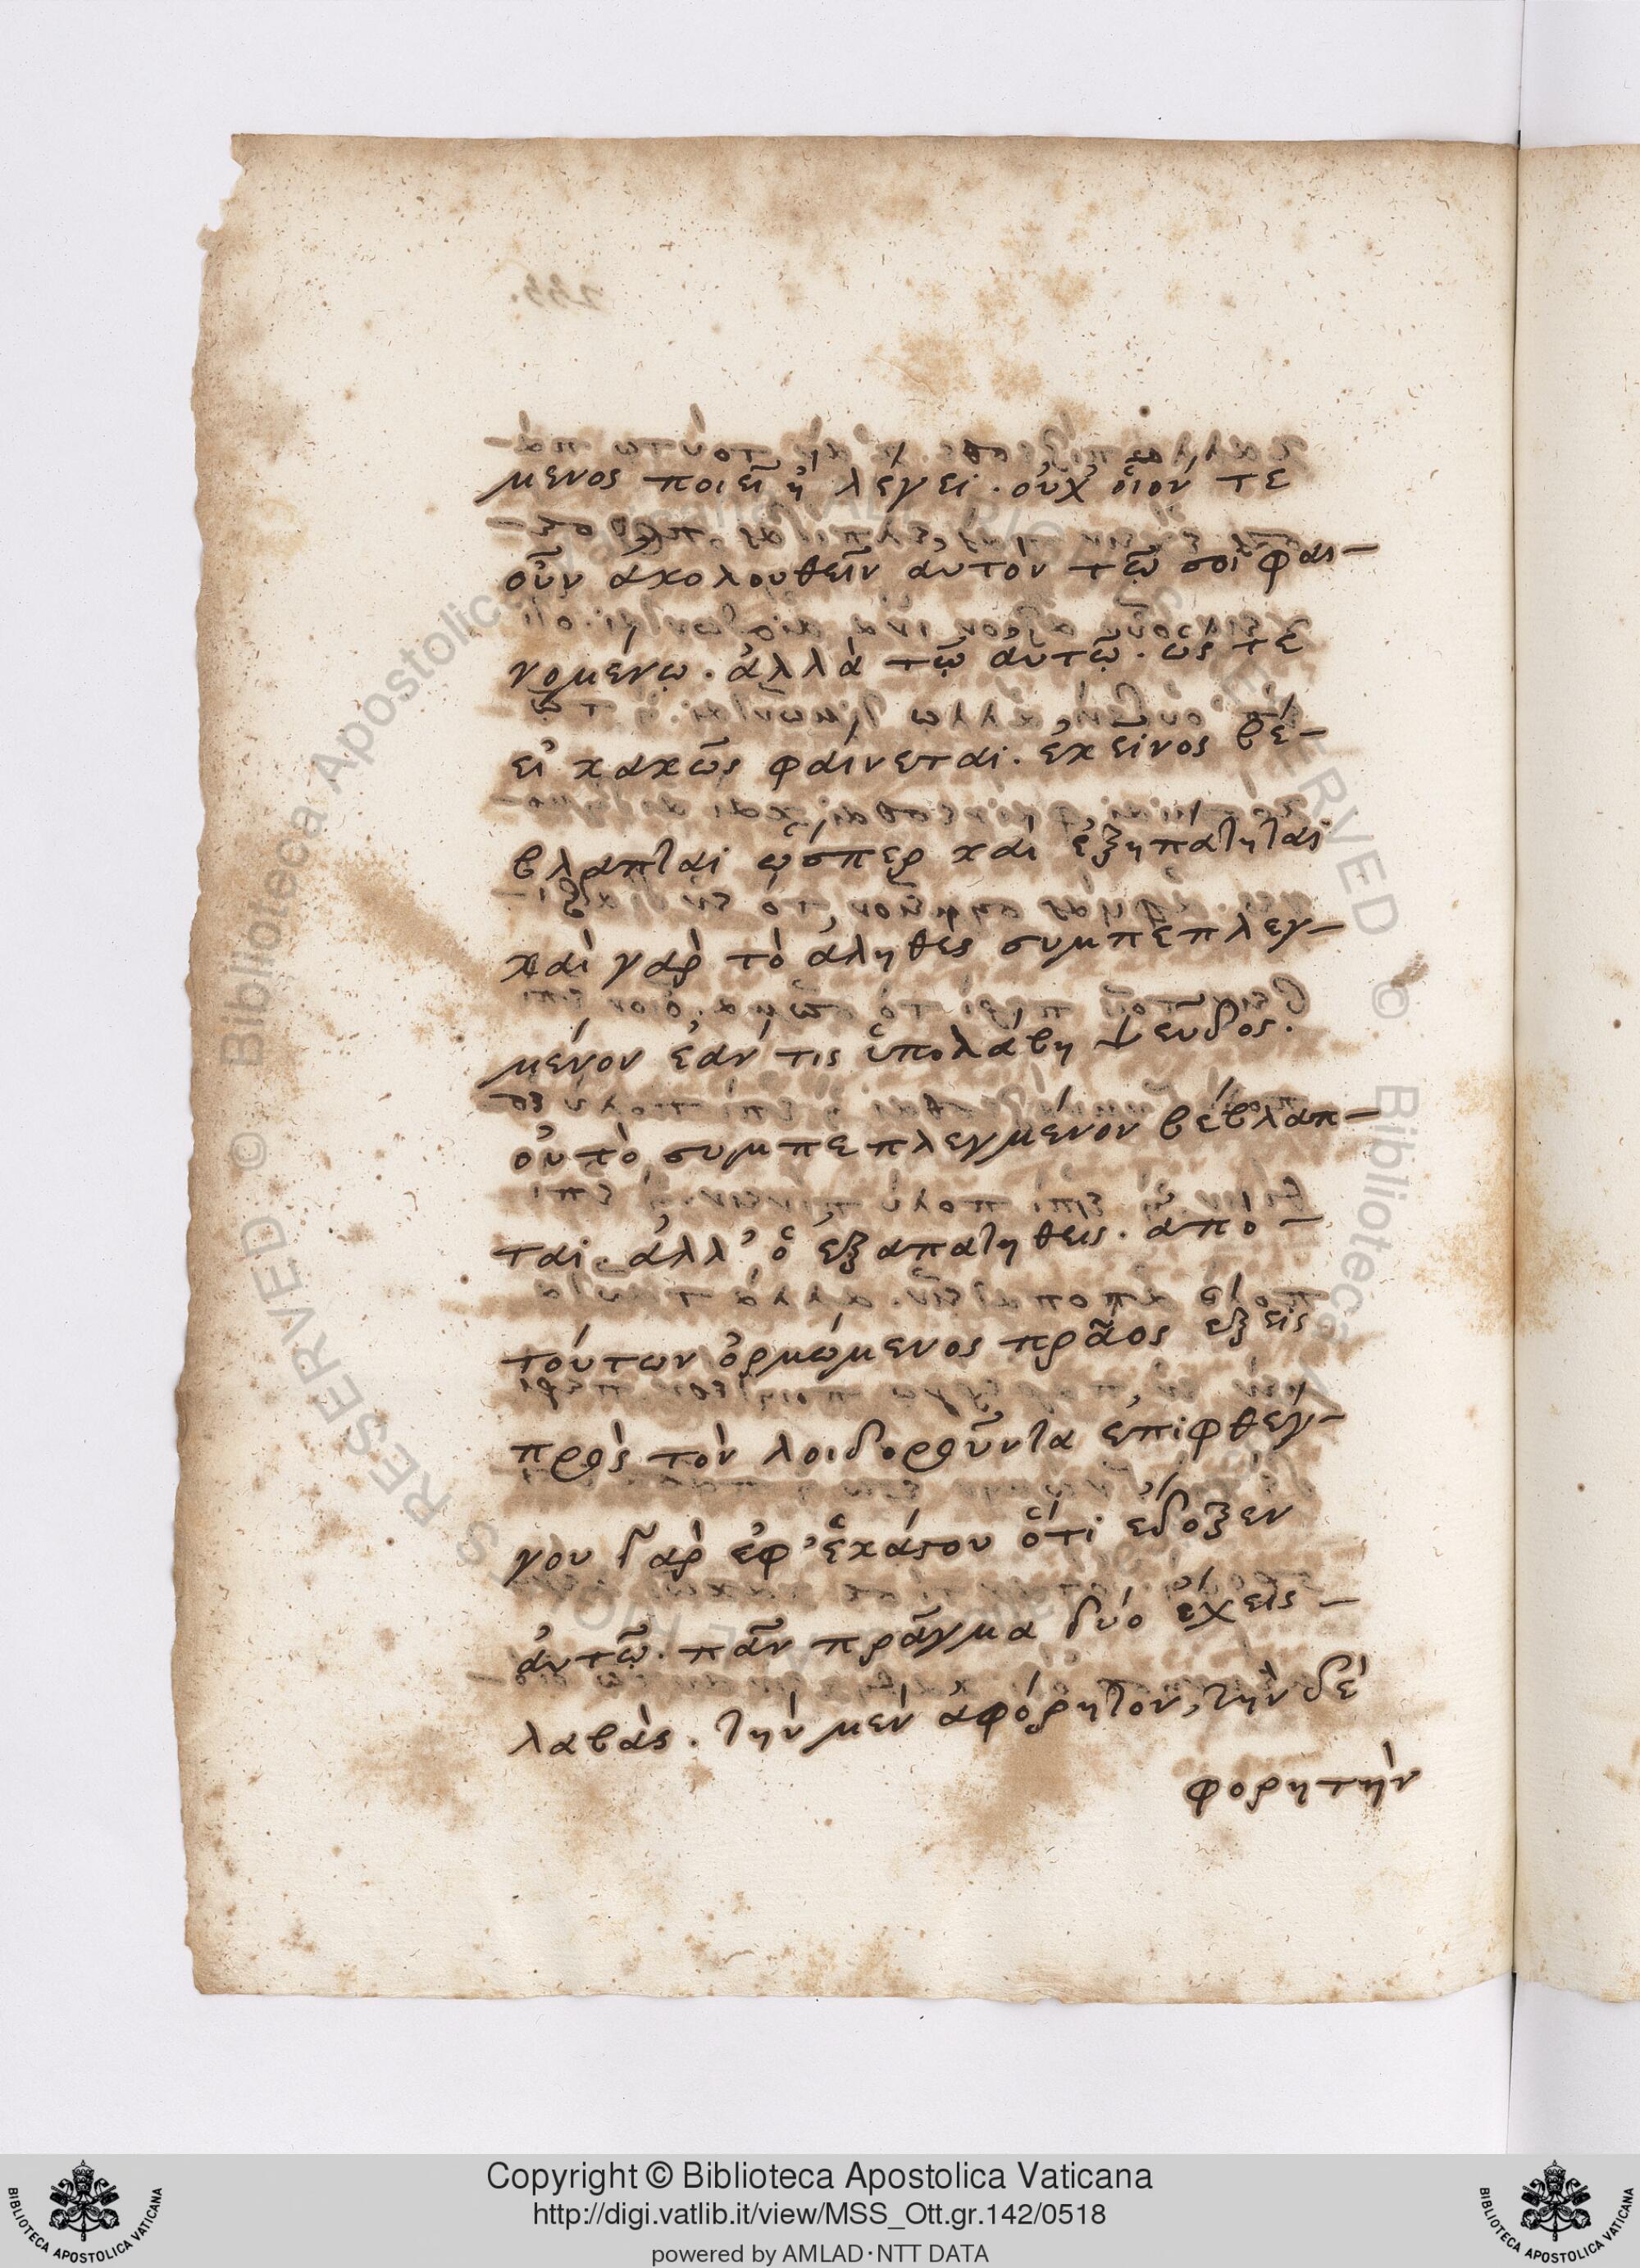 μενος ποιεῖ ἢ λέγει. οὐχ' οἷόν τε
οὖν ἀκολουθεῖν αὐτὸν τῶ σοὶ φαι-
νομένω. ἀλλὰ τῶ αὐτῶ. ὥς τε
εἰ κακῶς φαίνεται. ἐκεῖνος βέ-
βλαπται ὥσπερ καὶ ἐξηπάτηται
καὶ γὰρ τὸ ἀληθὲς συμπεπλεγ-
μένον ἐάν τις ὑπολάβη ψεῦδος.
οὐ τὸ συμπεπλεγμένον βέβλαπ-
ται. ἀλλ' ὁ ἐξαπατηθεὶς. ἀπὸ-
τούτων ὁρμώμενος πρᾶος ἕξεις
πρὸς τὸν λοιδοροῦντα ἐπιφθέγ-
γου γὰρ ἐφ' ἑκάστου ὅτι ἔδοξεν
αὐτῶ. πᾶν πρᾶγμα δύο ἔχεις-
λαβὰς. τὴν μὲν ἀφόρητον, τὴν δὲ
φορητὴν
Copyright © Biblioteca Apostolica Vaticana
http://digi.vatlib.it/view/MSS_Ott.gr.142/0518
powered by AMLAD·NTT DATA
BIBLIOTECA APOSTOLICA VATICANA
BIBLIOTECA APOSTOLICA VATICANA